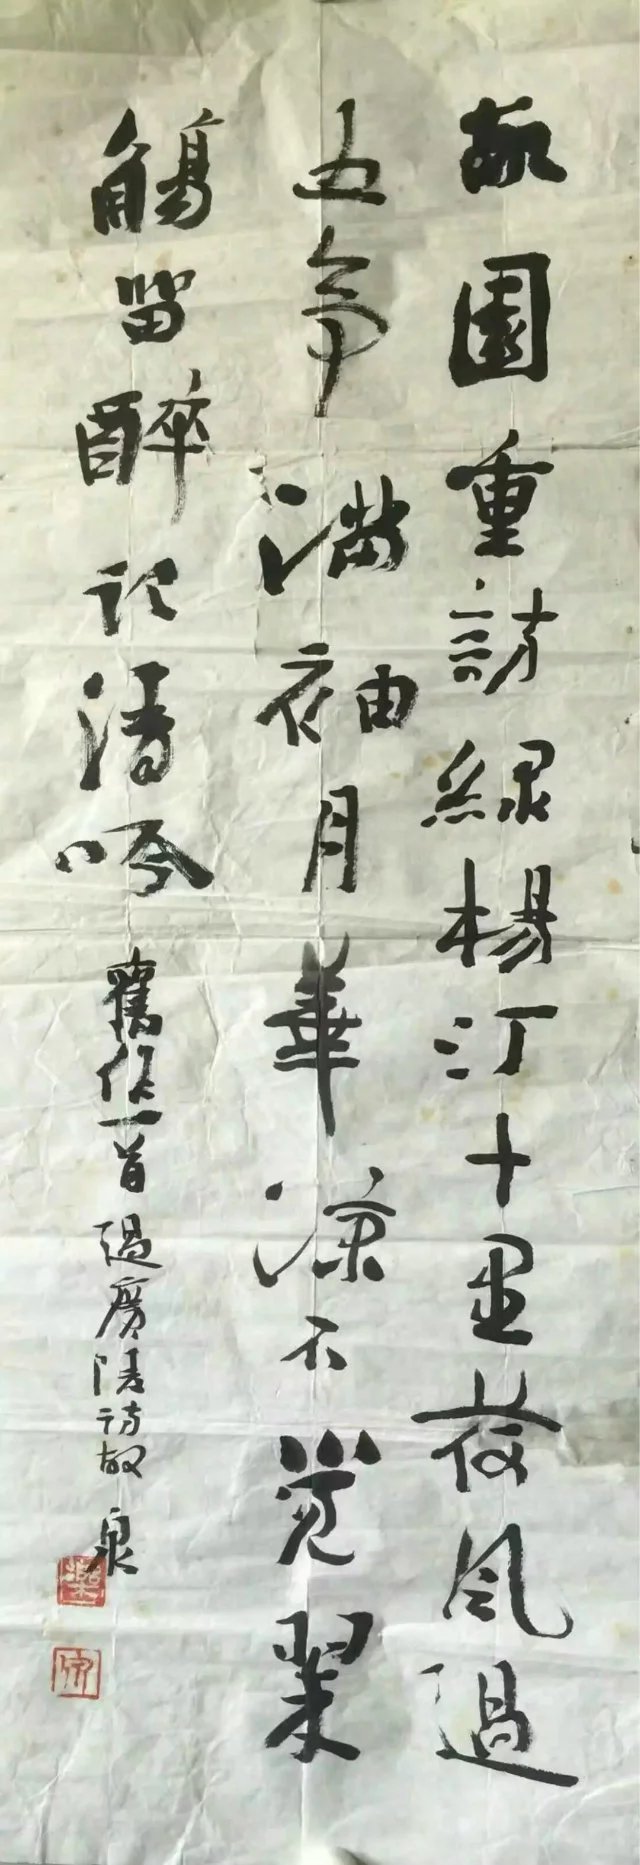 故園重訪綠楊汀十里荷風過
五亭滿袖月華涼不覺翠
觴留醉記清吟 舊作一首過廣陵訪故 泉